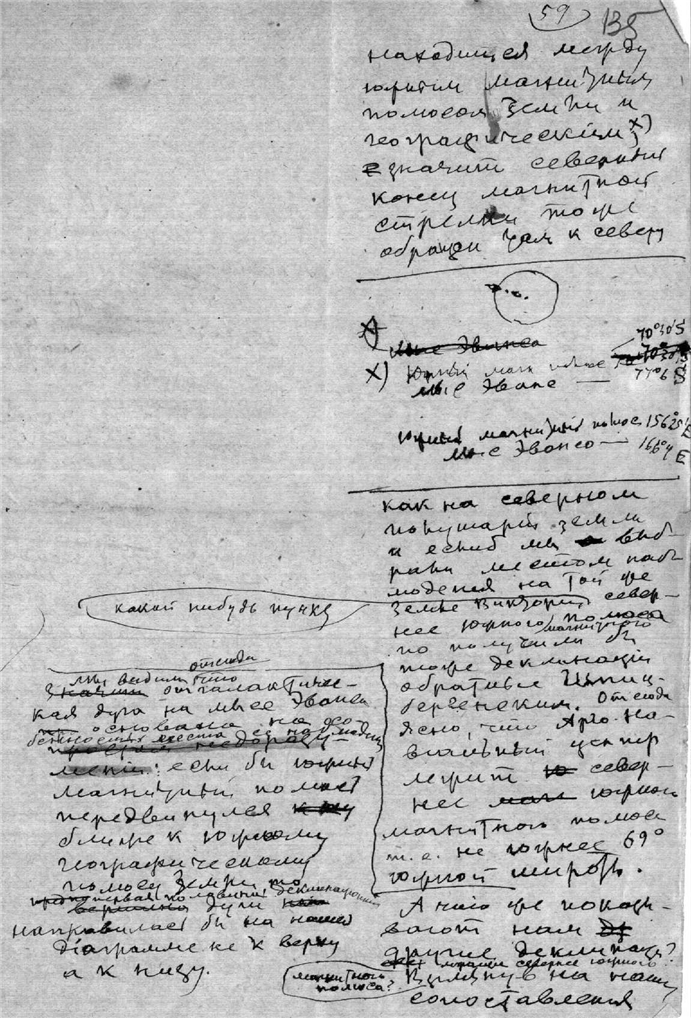 59 135
находится между
южным магнитным
полюсом Земли и
географическим x)
значит северный
конец магнитной
стрелки тоже
обращен там к северу
x) Мыс Эванса
70°30'S
x) Южный магн полюс
Мыс Эванс — 77°6 S
южный магнитный полюс 156°25'E
Мыс Эванса — 166°4 E
как на северном
полушарии земли
и если б мы выб
рали местом наб
людения на той же
земле Виктории север-
нее южного полюса
магнитного
то получили бы
тоже деклинации
обратные Шпиц-
бергенским. Отсюда
ясно, что
центр
лежит север-
нее южного
магнитного полюса
т.е. не южнее 69°
южной широты.
А что же показы-
вают нам
другие деклинации?
севернее южного
магнитного
полюса?
Взглянув на наши
сопоставления
какой нибудь пункт
отсюда
мы видим что
значит
кая дуга на мысе Эванса
основана на осо-
бенностях места
если бы южный
магнитный полюс
передвинулся
ближе к южному
географическому
полюсу Земли то
половина деклинационной
вершина дуги
направилась бы на нашей
диаграмме не к верху
а к низу.